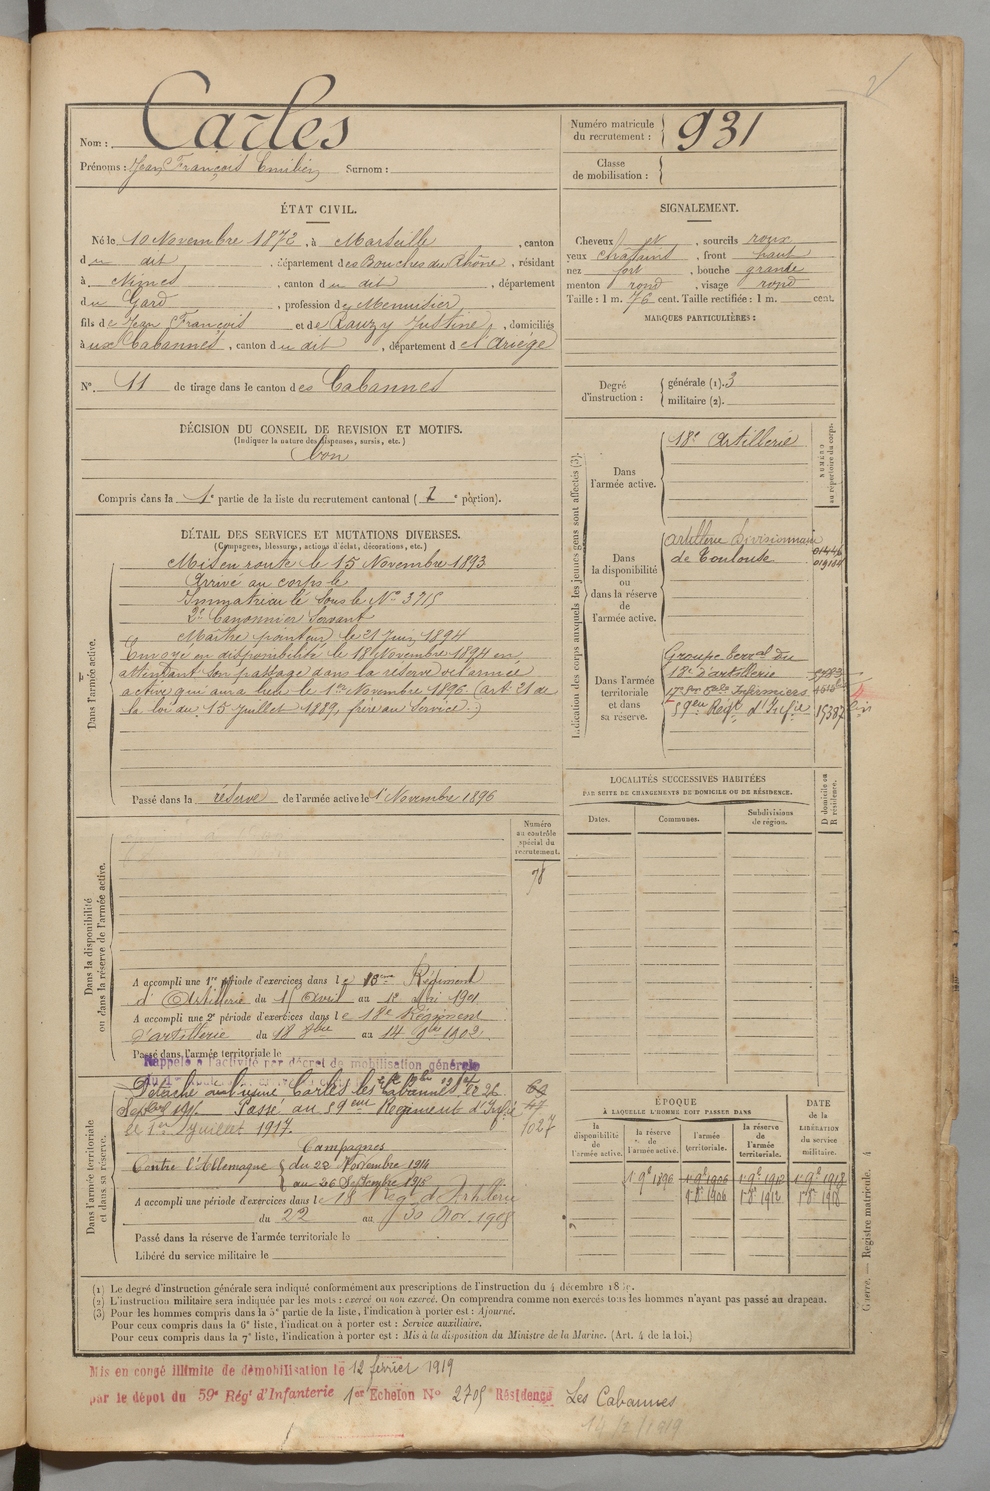 Nom : Carles
Prénoms : Jean François Emilien Surnom :
Numéro matricule du recrutement : 931
Classe de mobilisation :
ÉTAT CIVIL.
Né le 10 Novembre 1872, à Marseille, canton
du dit, département des Bouches du Rhône, résidant
à Nimes, canton du dit, département
du Gard, profession de Menuisier
fils de Jean François et de Rauzy Justine, domiciliés
à ux Cabannes, canton du dit, département de l'Ariége
N° 11 de tirage dans le canton des Cabannes
SIGNALEMENT.
Cheveux, sourcils roux
yeux chatains, front haut
nez fort, bouche grande
menton rond, visage rond
Taille : 1 m. 76 cent. Taille rectifiée : 1 m. cent.
MARQUES PARTICULIÈRES :
Degré d'instruction : générale (1). 3
militaire (2).
DÉCISION DU CONSEIL DE REVISION ET MOTIFS.
(Indiquer la nature des dispenses, sursis, etc.)
bon
Compris dans la 1e partie de la liste du recrutement cantonal ( e portion).
DÉTAIL DES SERVICES ET MUTATIONS DIVERSES.
(Campagnes, blessures, actions d'éclat, décorations, etc.)
Dans l'armée active.
Mis en route le 15 Novembre 1893
Arrivé au corps le
Immatriculé sous le N° 3715
2e Canonnier Servant
Maître pointeur le 21 Juin 1894
Envoyé en disponibilité le 18 Novembre 1894 en
attendant son passage dans la réserve de l'armée
active qui aura lieu le 1er Novembre 1896 (art. 21 de
la loi du 15 Juillet 1889, frère au service.)
Passé dans la réserve de l'armée active le 1 Novembre 1896
Indication des corps auxquels les jeunes gens sont affectés (3).
NUMÉRO au répertoire du corps.
Dans l'armée active.
18e Artillerie
Dans la disponibilité ou dans la réserve de l'armée active.
Artillerie Divisionnaire
de Toulouse
Dans l'armée territoriale et dans sa réserve.
Groupe terral du
18e d'artillerie
17e Son Infirmiers
59eme Régt d'Infie 15387
LOCALITÉS SUCCESSIVES HABITÉES
PAR SUITE DE CHANGEMENTS DE DOMICILE OU DE RÉSIDENCE.
Dates. Communes. Subdivisions de région. D domicile ou R résidence.
Dans la disponibilité ou dans la réserve de l'armée active.
Numéro au contrôle spécial du recrutement.
78
A accompli une 1re période d'exercices dans le Régiment
d'Artillerie du 15 Avril au Mai 1901
A accompli une 2e période d'exercices dans le 18e Régiment
d'artillerie du 18 8bre au 14 9bre 1902
Passé dans l'armée territoriale le
Rappelé à l'activité par décret de mobilisation générale
Dans l'armée territoriale et dans sa réserve.
Détaché usine Carles les Cabannes le 26
Septbre Passé au 59eme Régiment d'Infie
le 1er Juillet 1917. 1027
Campagnes
Contre l'Allemagne du 22 Novembre 1914
au 26 Septembre 1915
A accompli une période d'exercices dans le 18e Rég d'Artillerie
du 22 au 30 Nov. 1908
Passé dans la réserve de l'armée territoriale le
Libéré du service militaire le
ÉPOQUE
À LAQUELLE L'HOMME DOIT PASSER DANS
DATE de la LIBÉRATION du service militaire.
la disponibilité de l'armée active. la réserve de l'armée active. l'armée territoriale. la réserve de l'armée territoriale.
1 9e 1896 1 9e 1906 1 9e 1912 1 9e 1918
1 8e 1906 1 8e 1912 1 8e 1918
Guerre. — Registre matricule. 4
(1) Le degré d'instruction générale sera indiqué conformément aux prescriptions de l'instruction du 4 décembre
(2) L'instruction militaire sera indiquée par les mots : exercé ou non exercé. On comprendra comme non exercés tous les hommes n'ayant pas passé au drapeau.
(3) Pour les hommes compris dans la 5e partie de la liste, l'indication à porter est : Ajourné.
Pour ceux compris dans la 6e liste, l'indication à porter est : Service auxiliaire.
Pour ceux compris dans la 7e liste, l'indication à porter est : Mis à la disposition du Ministre de la Marine. (Art. 4 de la loi.)
Mis en congé illimité de démobilisation le 12 février 1919
par le dépot du 59e Régt d'Infanterie 1er Echelon N° 2705 Résidence Les Cabannes